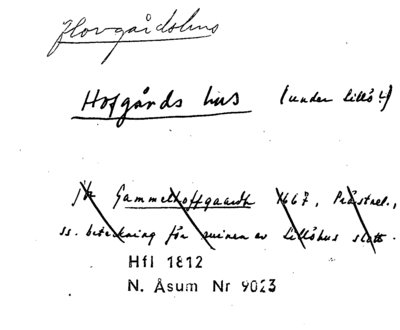 Hovgårdshus
Hofgårds hus (under Lillö?)
jfr Gammelhoffgaardh 1667, Prästrel.,
ss. beteckning för ruinen av Lillöhus slott.
Hfl 1812
N. Åsum Nr 9023